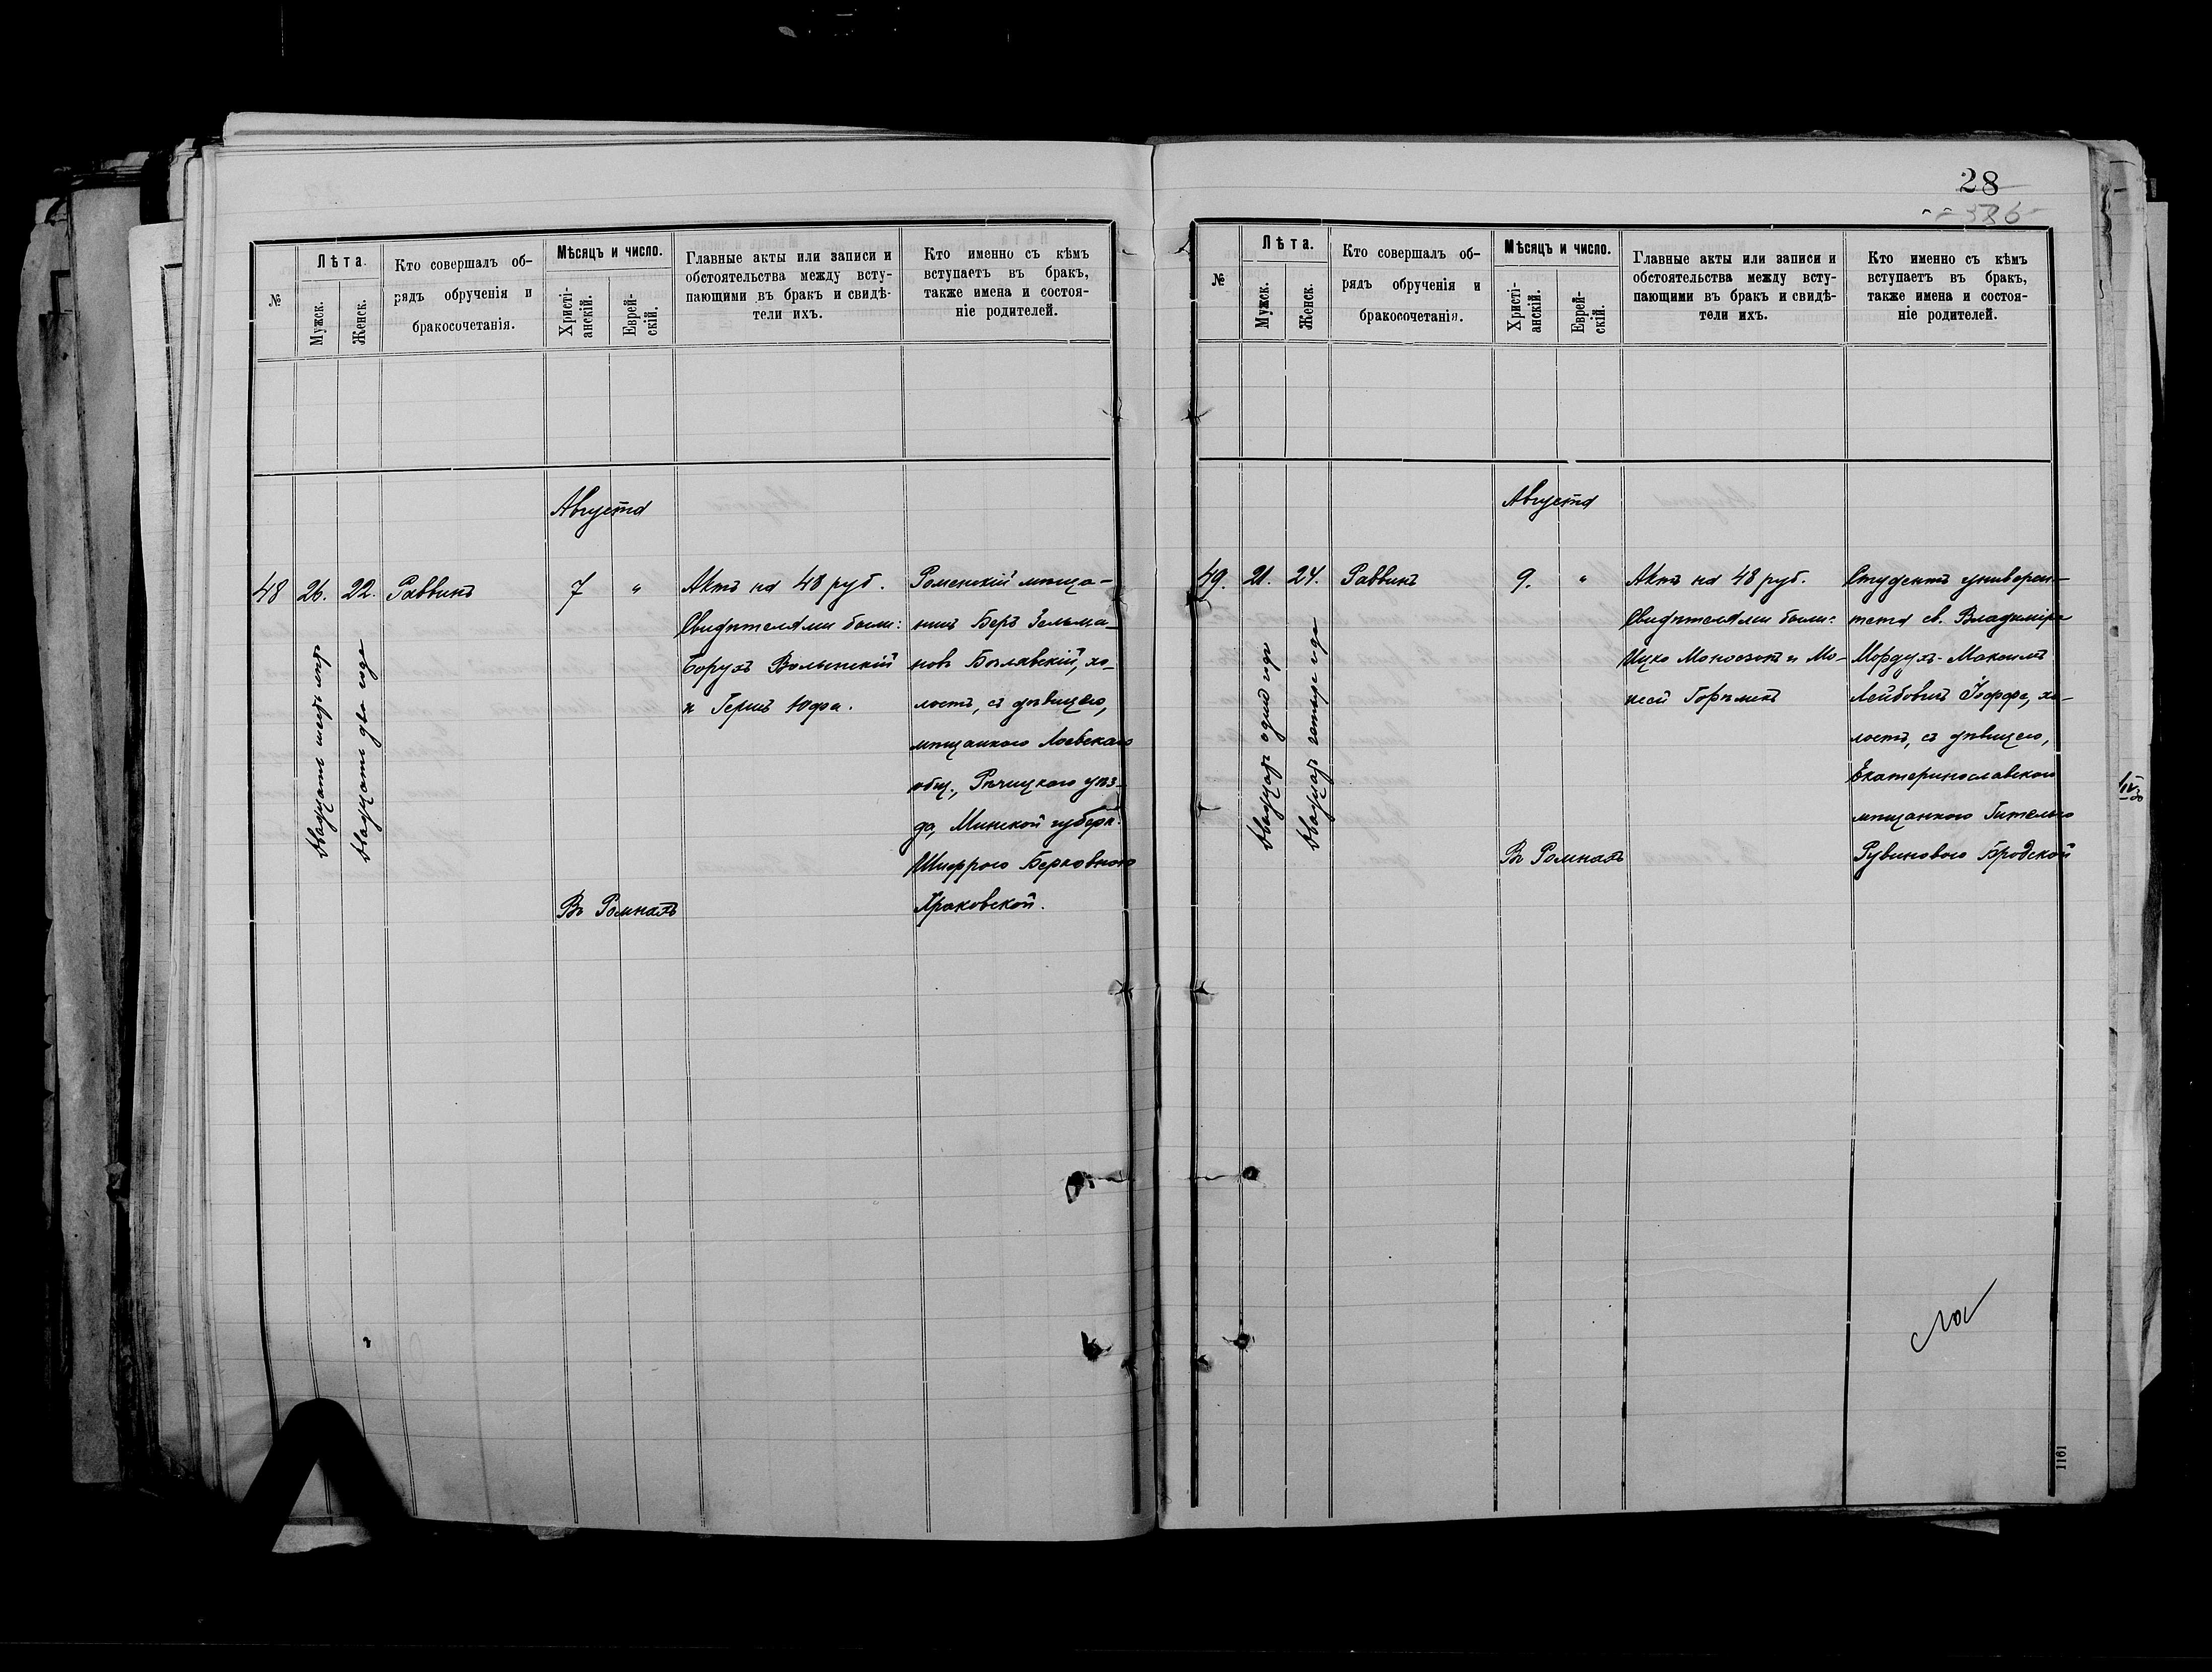 №
Лѣта.
Мужск.
Женск.
Кто совершалъ об-
рядъ обрученія и
бракосочетанія.
Мѣсяцъ и число.
Христі-
анскій.
Еврей-
скій.
Главные акты или записи и
обстоятельства между всту-
пающими въ бракъ и свидѣ-
тели ихъ.
Кто именно съ кѣмъ
вступаетъ въ бракъ,
также имена и состоя-
ніе родителей.
Августа
48
26.
Двадцать шесть лѣтъ
22.
Двадцать два года
Раввинъ
7
"
Въ Ромнахъ
Актъ на 48 руб.
Свидѣтелями были:
Борухъ Волынскій
и Гершъ Юфа.
Роменскій мѣща-
нинъ Беръ Зельма-
новъ Бѣлявскій, хо-
лостъ, съ дѣвицею,
мѣщанкою Лоевскаго
общ., Рѣчицкаго уѣз-
да, Минской губерн.
Шифрою Берковною
Краковской.
28
386
№
Лѣта.
Мужск.
Женск.
Кто совершалъ об-
рядъ обрученія и
бракосочетанія.
Мѣсяцъ и число.
Христі-
анскій.
Еврей-
скій.
Главные акты или записи и
обстоятельства между всту-
пающими въ бракъ и свидѣ-
тели ихъ.
Кто именно съ кѣмъ
вступаетъ въ бракъ,
также имена и состоя-
ніе родителей.
Августа
49.
21.
Двадцать одинъ годъ
24.
Двадцать четыре года
Раввинъ
9.
"
Въ Ромнахъ
Актъ на 48 руб.
Свидѣтелями были:
Ицко и Мо-
исей
Студентъ универси-
тета св. Владиміра
Мордухъ-Максимъ
Лейбовичъ Іоффе, хо-
лостъ, съ дѣвицею,
Екатеринославской
мѣщанкою Гителью
Рувиновою Бродской
1161